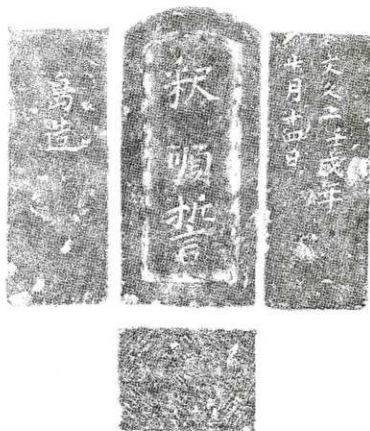 文久二壬戌年
十月十四日
釈順誓
造